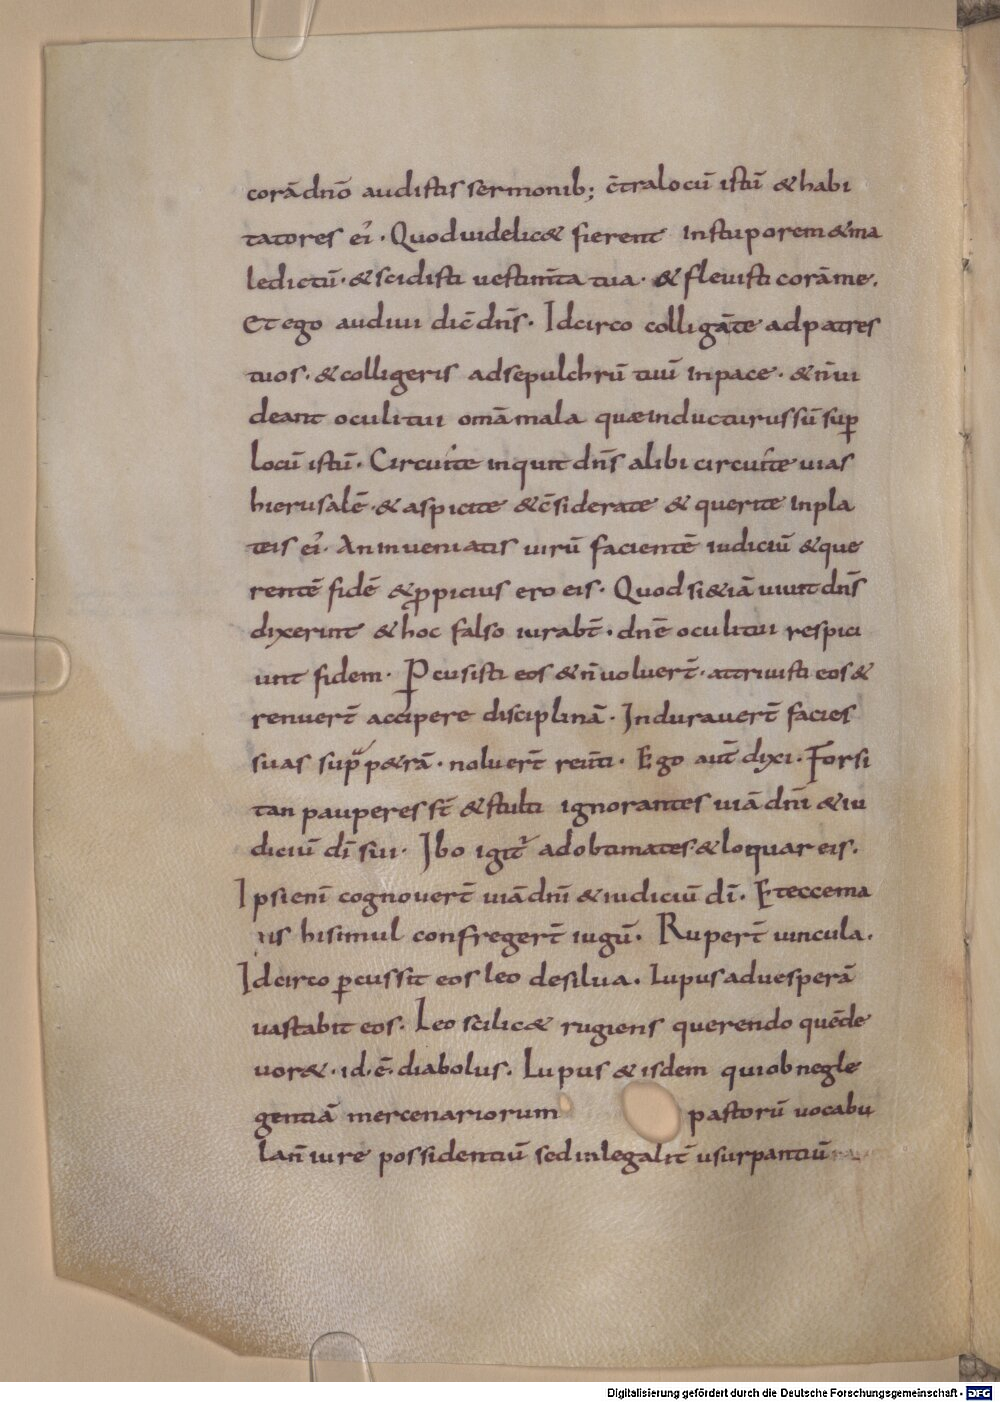 corā dnō audistis sermonib; c̄tra locū istū & habi
tatores ei᾿. Quod uidelic& fierent In stuporem & ma
ledictū. & scidisti uestim̄ta tua. & fleuisti corā me.
Et ego audiui dic̄ dn̄s. Idcirco colligā te ad patres
tuos. & colligeris ad sepulchrū tuū In pace. & n̄ ui
deant oculi tui om̄a mala quæ inducturus sū sup̄
locū istū. Circuite inquit dn̄s alibi circuite uias
hierusalē. & aspicite & c̄siderate & querite In pla
teis ei᾿. An inueniatis uirū facientē iudiciū & que
rentē fidē & ꝓpicius ero eis. Quod si & iā uiuit dn̄s
dixerint & hoc falso iurab̄t. dn̄e oculi tui respici
unt fidem. Ꝑcusisti eos & n̄ uoluer̄t. attriuisti eos &
renuer̄t accipere disciplinā. Indurauer̄t facies
suas supᷓ p&rā. noluer̄t reu̅ti. Ego aut̄ dixi. Forsi
tan pauperes st̄ & stulti ignorantes uiā dn̄i & iu
diciū dī sui. Ibo igit᾿ ad obtimates & loquar eis.
Ipsi eni̅ cognouer̄t uiā dn̄i & iudiciū dī. Et ecce ma
iis hi simul confreger̄t iugū. Ruper̄t uincula.
Idcirco ꝑcussit eos leo de silua. Lupus ad uesperā
uastabit eos. Leo scilic& rugiens querendo quē de
uor&. id. ē. diabolus. Lupus & isdem qui ob negle
gentiā mercenariorum pastorū uocabu
la n̄ iure possidentiū sed inlegalit̄ usurpantiū
Digitalisierung gefördert durch die Deutsche Forschungsgemeinschaft - DFG